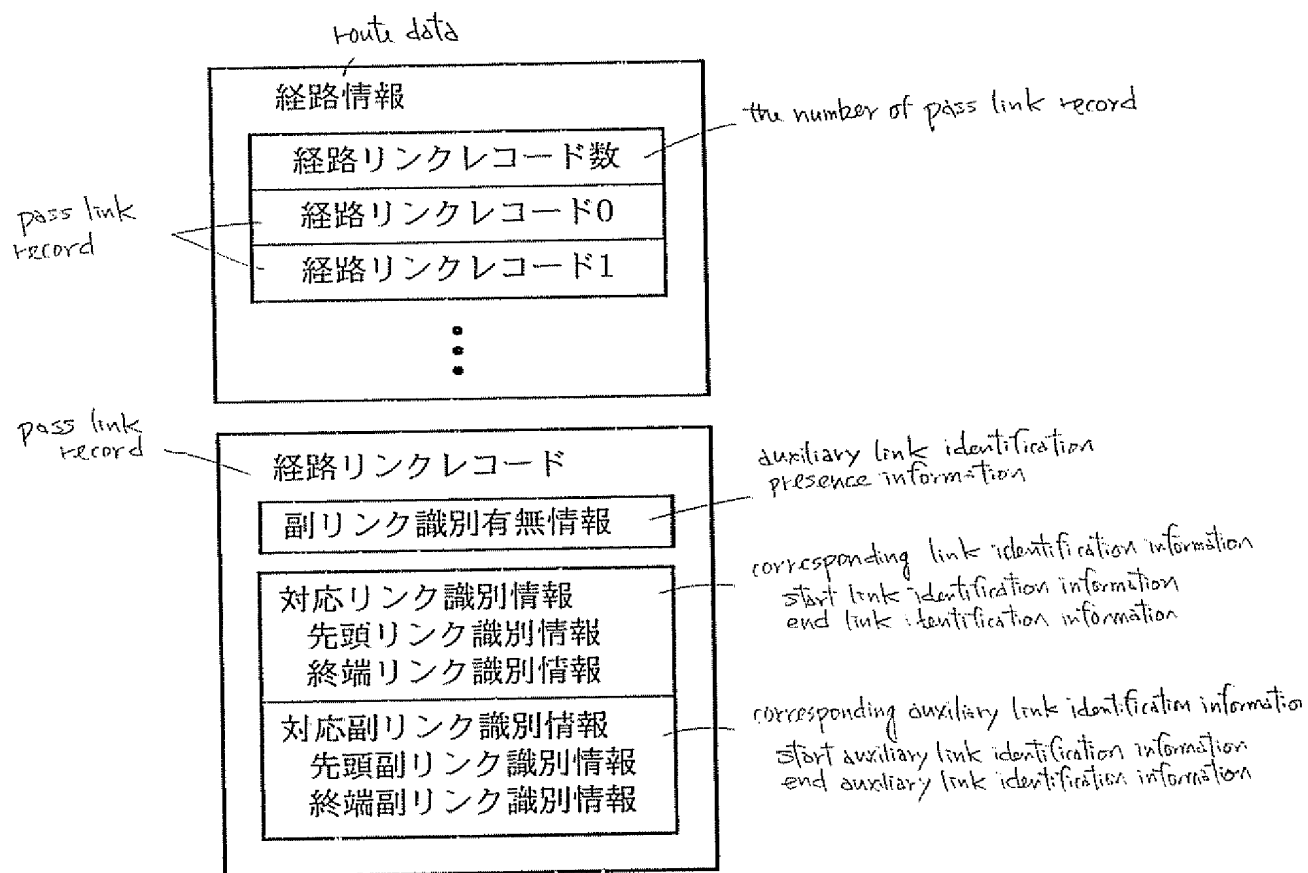 route data
経路情報
経路リンクレコード数
the number of pass link record
経路リンクレコード0
経路リンクレコード1
pass link
record
pass link
record
経路リンクレコード
副リンク識別有無情報
auxiliary link identification
presence information
対応リンク識別情報
先頭リンク識別情報
終端リンク識別情報
corresponding link identification information
start link identification information
end link identification information
対応副リンク識別情報
先頭副リンク識別情報
終端副リンク識別情報
corresponding auxiliary link identification information
start auxiliary link identification information
end auxiliary link identification information